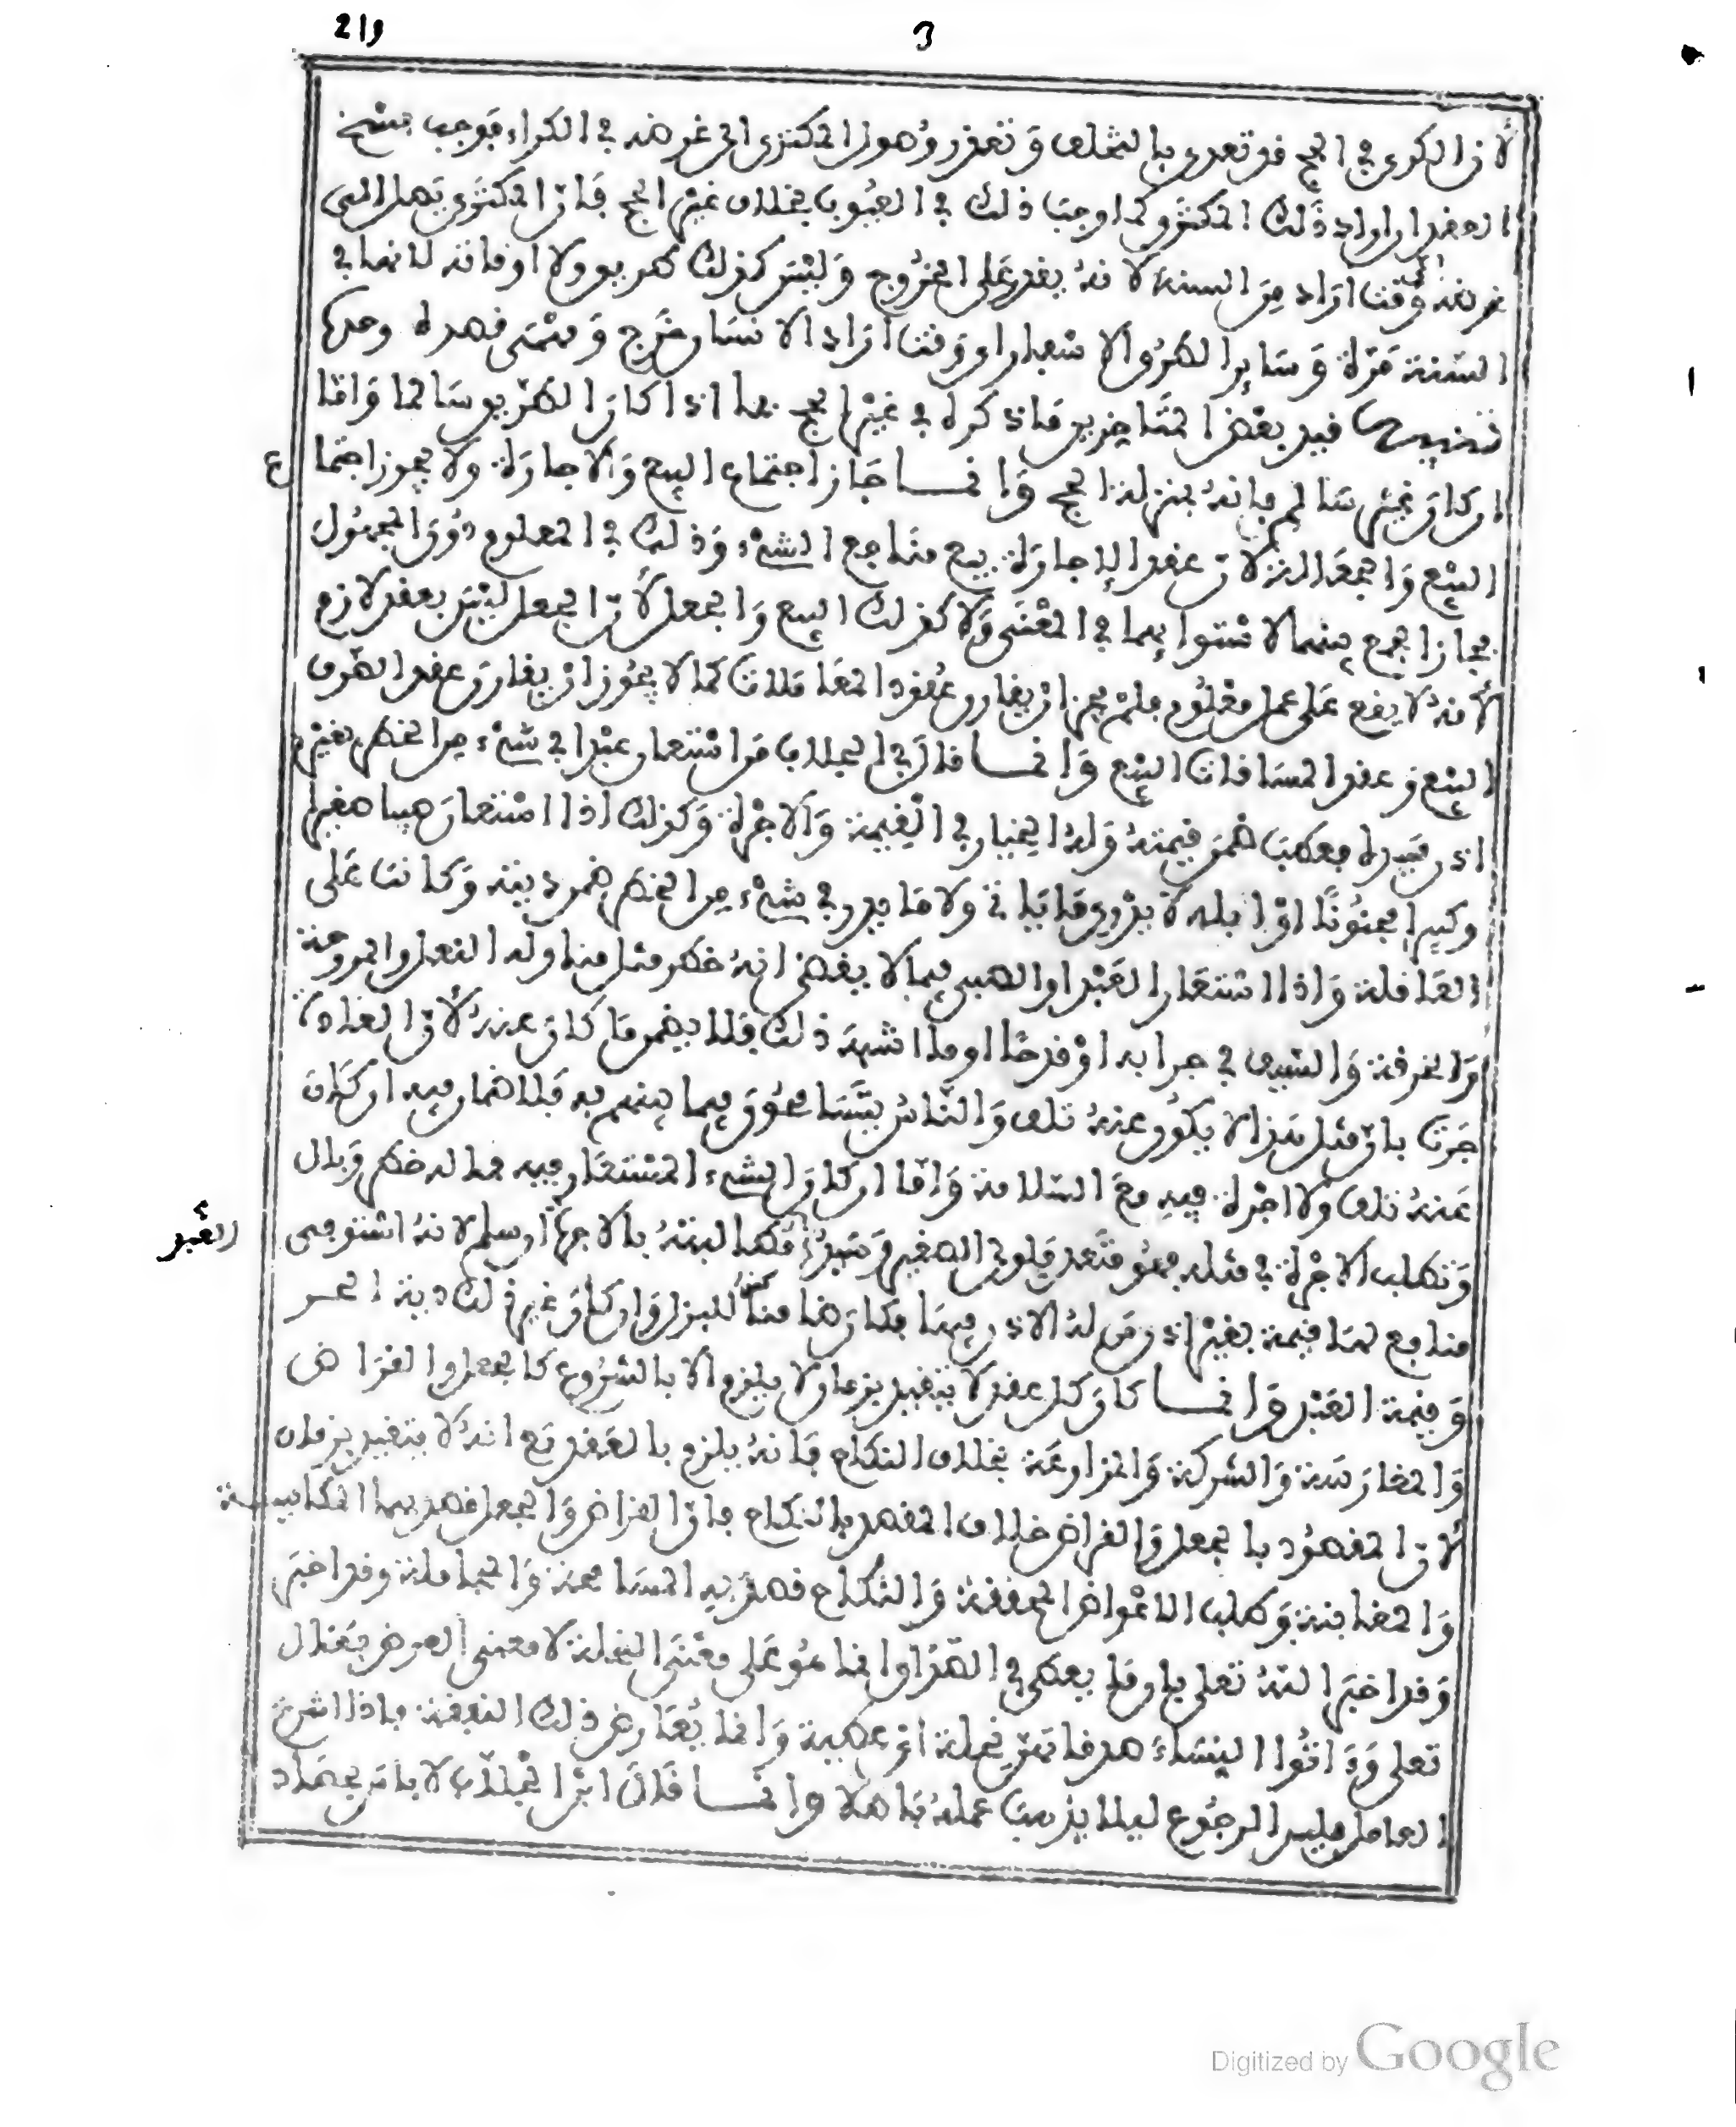 219 3
لان الكري في الحج قد تعدى بالتخلف وتعذر وصول المكتري الى غرضه في الكراء فوجب فسخ
العقد ان اراد ذلك المكتري كما وجب ذلك في العيوب بخلاف غير الحج فان المكتري يصل الى
غرضه اي وقت اراد من السنة لانه يقدر على الخروج وليس كذلك طريق ولا اوقاته لانها في
السنة مرة وساير الطرق والاسفار اي وقت اراد الانسان خرج ومشى فصد له وحدها
تنبيه قيد بعض المتاخرين ما ذكره في غير الحج بما اذا كان الطريق سالما واما
ان كان غير سالم فانه بمنزلة الحج وانما جاز اجتماع البيع والاجارة ولا يجوز اجتماع
البيع والجعالة لان عقد الاجارة بيع منافع الشيء وذلك في المعلوم دون المجهول
فجاز الجمع بينهما لاستوايهما في المعنى ولا كذلك البيع والجعل لان الجعل ليس بعقد لازم
لانه لا يقع على عمل معلوم فلم يجز ان يقارن عقود المعاملات كما لا يجوز ان يقارن عقد الصرف
البيع وعقد المساقات البيع وانما قال في الجلاب من استعمل عبدا في شيء من الخطر بغير
اذن سيده فعطب ضمن قيمته وله الخيار في القيمة والاجرة وكذلك اذا استعان صبيا صغيرا
وكبيرا مجنونا او ابله لا يدري ما ياتي ولا ما يدر في شيء من الخطر ضمن ديته وكانت على
العاقلة واذا استعان العبد او الصبي فيما لا يفضي انه خطر مثل مناولة النعل والمروحة
والخرقة والسيف في جرابه او قدحا او ما اشبه ذلك فلا يضمن ما كان عنده لان العادة
جرت بان مثل هذا لا يكون عنه تلف والناس يتسامحون فيما بينهم به فلا ضمان فيه ان كان
عنه تلف ولا اجرة فيه مع السلامة واما ان كان الشيء المستعان فيه مما له خطر وبال
وتطلب الاجرة في مثله فهو متعد فلولي الصغير وسيد العبد مطالبته بالاجرة ان سلم لانه استوفى
منافع لها قيمة بغير اذن من له الاذن فيها فكان ضامنا كذلك وان كان غير ذلك دية الحر
وقيمة العبد وانما كان كل عقد لا يتقيد بزمان ولا يلزم الا بالشروع كالجعل والقراض
والمغارسة والشركة والمزارعة بخلاف النكاح فانه يلزم بالعقد مع انه لا يتقيد بزمان
لان المقصود بالجعل والقراض خلاف المقصد بالنكاح فان القراض والجعل قصد بهما المكايسة
والمغابنة وطلب الاعواض المحققة والنكاح قصد به المسامحة والمجاملة وقد اخبر
وقد اخبر الله تعلى بان ما يعطى في الصداق انما هو على معنى النحلة لا معنى العوض فقال
تعلى وءاتوا النساء صدقاتهن نحلة اي عطية وانما يعار عن ذلك النفقة فاذا شرع
العامل فليس الرجوع ليلا يذهب عمله باطلا وانما قال ابن الجلاب لا باس بحصاد
ع
العبد
Digitized by Google